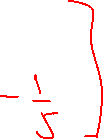 -1/5 ]